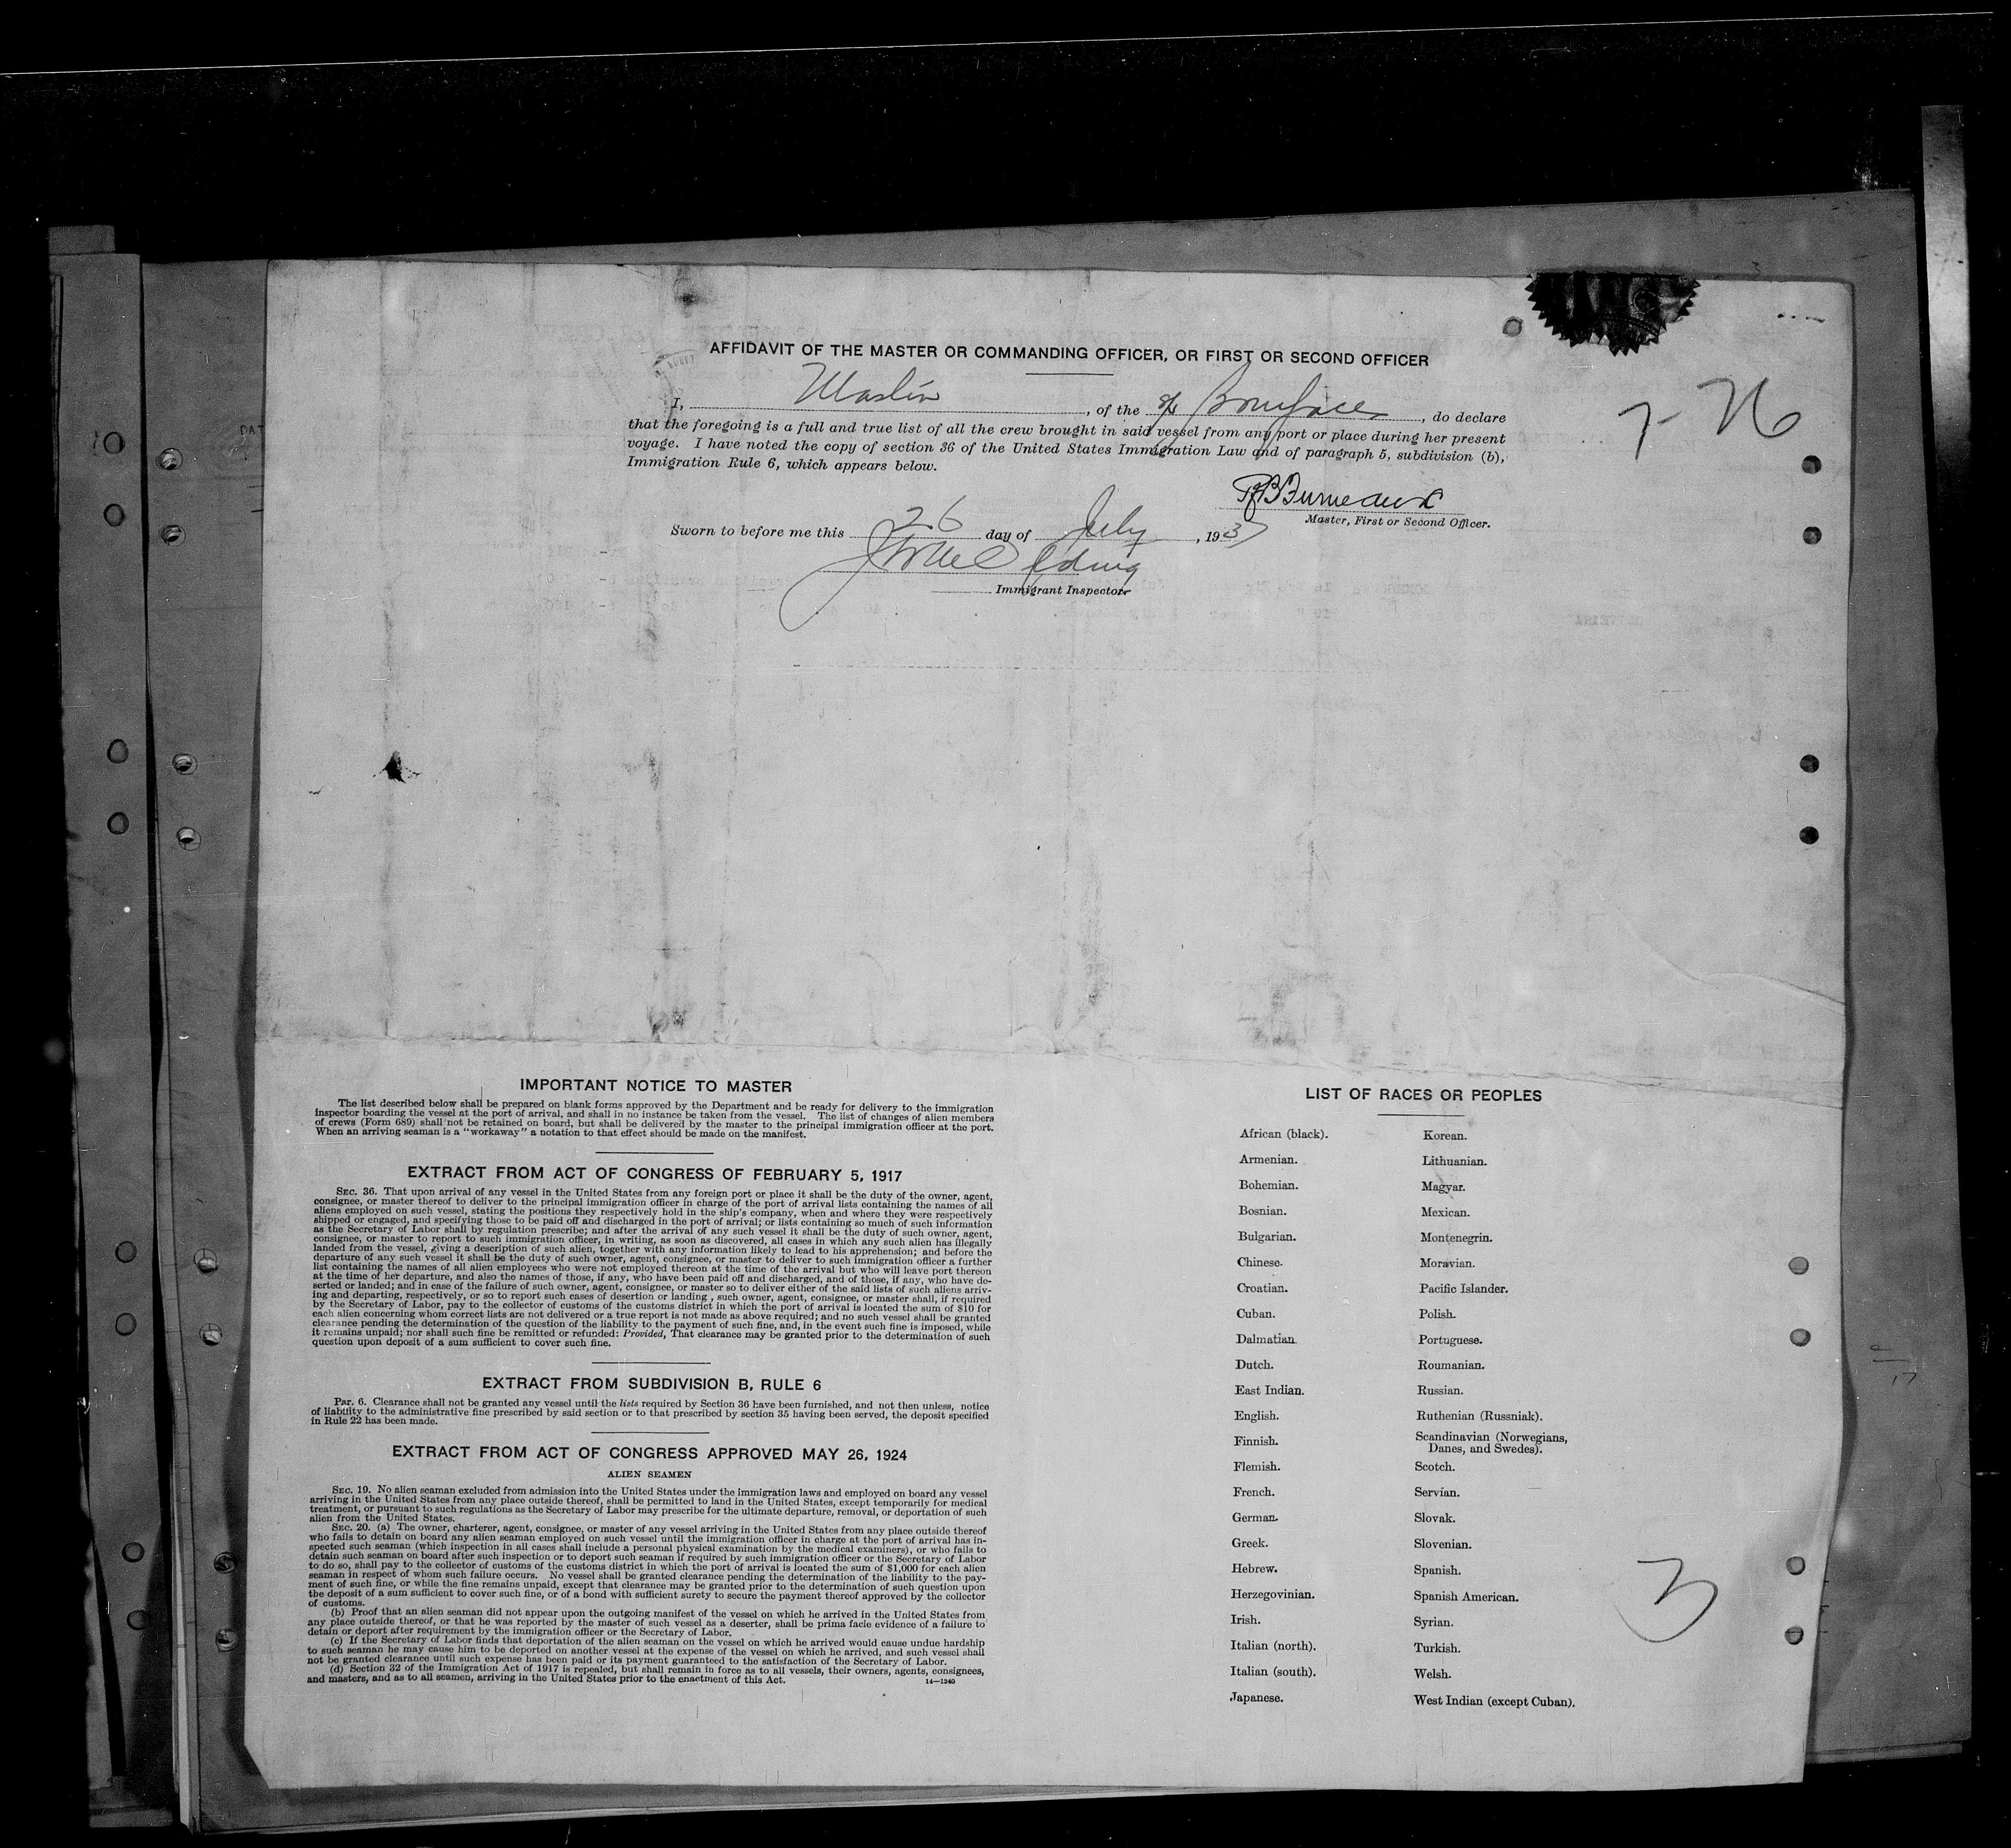 AFFIDAVIT OF THE MASTER OR COMMANDING OFFICER, OR FIRST OR SECOND OFFICER
I, Master, of the S/S Boniface, do declare
that the foregoing is a full and true list of all the crew brought in said vessel from any port or place during her present
voyage. I have noted the copy of section 36 of the United States Immigration Law and of paragraph 5, subdivision (b),
Immigration Rule 6, which appears below.
7-26
Master, First or Second Officer.
Sworn to before me this 26 day of July, 1937
Immigrant Inspector.
IMPORTANT NOTICE TO MASTER
The list described below shall be prepared on blank forms approved by the Department and be ready for delivery to the immigration
inspector boarding the vessel at the port of arrival, and shall in no instance be taken from the vessel. The list of changes of alien members
of crews (Form 689) shall not be retained on board, but shall be delivered by the master to the principal immigration officer at the port.
When an arriving seaman is a "workaway" a notation to that effect should be made on the manifest.
EXTRACT FROM ACT OF CONGRESS OF FEBRUARY 5, 1917
SEC. 36. That upon arrival of any vessel in the United States from any foreign port or place it shall be the duty of the owner, agent,
consignee, or master thereof to deliver to the principal immigration officer in charge of the port of arrival lists containing the names of all
aliens employed on such vessel, stating the positions they respectively hold in the ship's company, when and where they were respectively
shipped or engaged, and specifying those to be paid off and discharged in the port of arrival; or lists containing so much of such information
as the Secretary of Labor shall by regulation prescribe; and after the arrival of any such vessel it shall be the duty of such owner, agent,
consignee, or master to report to such immigration officer, in writing, as soon as discovered, all cases in which any such alien has illegally
landed from the vessel, giving a description of such alien, together with any information likely to lead to his apprehension; and before the
departure of any such vessel it shall be the duty of such owner, agent, consignee, or master to deliver to such immigration officer a further
list containing the names of all alien employees who were not employed thereon at the time of the arrival but who will leave port thereon
at the time of her departure, and also the names of those, if any, who have been paid off and discharged, and of those, if any, who have de-
serted or landed; and in case of the failure of such owner, agent, consignee, or master so to deliver either of the said lists of such aliens arriv-
ing and departing, respectively, or so to report such cases of desertion or landing , such owner, agent, consignee, or master shall, if required
by the Secretary of Labor, pay to the collector of customs of the customs district in which the port of arrival is located the sum of $10 for
each alien concerning whom correct lists are not delivered or a true report is not made as above required; and no such vessel shall be granted
clearance pending the determination of the question of the liability to the payment of such fine, and, in the event such fine is imposed, while
it remains unpaid; nor shall such fine be remitted or refunded: Provided, That clearance may be granted prior to the determination of such
question upon deposit of a sum sufficient to cover such fine.
EXTRACT FROM SUBDIVISION B, RULE 6
Par. 6. Clearance shall not be granted any vessel until the lists required by Section 36 have been furnished, and not then unless, notice
of liability to the administrative fine prescribed by said section or to that prescribed by section 35 having been served, the deposit specified
in Rule 22 has been made.
EXTRACT FROM ACT OF CONGRESS APPROVED MAY 26, 1924
ALIEN SEAMEN
SEC. 19. No alien seaman excluded from admission into the United States under the immigration laws and employed on board any vessel
arriving in the United States from any place outside thereof, shall be permitted to land in the United States, except temporarily for medical
treatment, or pursuant to such regulations as the Secretary of Labor may prescribe for the ultimate departure, removal, or deportation of such
alien from the United States.
SEC. 20. (a) The owner, charterer, agent, consignee, or master of any vessel arriving in the United States from any place outside thereof
who fails to detain on board any alien seaman employed on such vessel until the immigration officer in charge at the port of arrival has in-
spected such seaman (which inspection in all cases shall include a personal physical examination by the medical examiners), or who fails to
detain such seaman on board after such inspection or to deport such seaman if required by such immigration officer or the Secretary of Labor
to do so, shall pay to the collector of customs of the customs district in which the port of arrival is located the sum of $1,000 for each alien
seaman in respect of whom such failure occurs. No vessel shall be granted clearance pending the determination of the liability to the pay-
ment of such fine, or while the fine remains unpaid, except that clearance may be granted prior to the determination of such question upon
the deposit of a sum sufficient to cover such fine, or of a bond with sufficient surety to secure the payment thereof approved by the collector
of customs.
(b) Proof that an alien seaman did not appear upon the outgoing manifest of the vessel on which he arrived in the United States from
any place outside thereof, or that he was reported by the master of such vessel as a deserter, shall be prima facie evidence of a failure to
detain or deport after requirement by the immigration officer or the Secretary of Labor.
(c) If the Secretary of Labor finds that deportation of the alien seaman on the vessel on which he arrived would cause undue hardship
to such seaman he may cause him to be deported on another vessel at the expense of the vessel on which he arrived, and such vessel shall
not be granted clearance until such expense has been paid or its payment guaranteed to the satisfaction of the Secretary of Labor.
(d) Section 32 of the Immigration Act of 1917 is repealed, but shall remain in force as to all vessels, their owners, agents, consignees,
and masters, and as to all seamen, arriving in the United States prior to the enactment of this Act.
14—1240
LIST OF RACES OR PEOPLES
African (black).
Armenian.
Bohemian.
Bosnian.
Bulgarian.
Chinese.
Croatian.
Cuban.
Dalmatian.
Dutch.
East Indian.
English.
Finnish.
Flemish.
French.
German.
Greek.
Hebrew.
Herzegovinian.
Irish.
Italian (north).
Italian (south).
Japanese.
Korean.
Lithuanian.
Magyar.
Mexican.
Montenegrin.
Moravian.
Pacific Islander.
Polish.
Portuguese.
Roumanian.
Russian.
Ruthenian (Russniak).
Scandinavian (Norwegians,
Danes, and Swedes).
Scotch.
Servian.
Slovak.
Slovenian.
Spanish.
Spanish American.
Syrian.
Turkish.
Welsh.
West Indian (except Cuban).
3